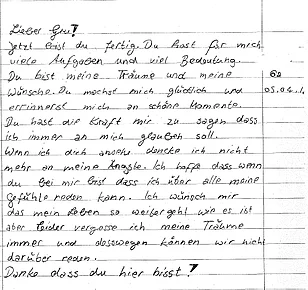 Lieber Gru!
Jetzt bist du fertig. Du hast für mich
viele Aufgaben und viel Bedeutung.
Du bist meine Träume und meine
Wünsche. Du machst mich glücklich und
errinnerst mich an schöne Momente.
Du hast die Kraft mir zu sagen dass
ich immer an mich glauben soll.
Wenn ich dich ansehe dencke ich nicht
mehr an meine Ängste. Ich hoffe dass wenn
du bei mir bist dass ich über alle meine
Gefühle reden kann. Ich wünsch mir
das mein Leben so weitergeht wie es ist
aber leider vergesse ich meine Träume
immer und desswegen können wir nicht
darüber reden.
Danke dass du hier bisst!
6a
05.04.1